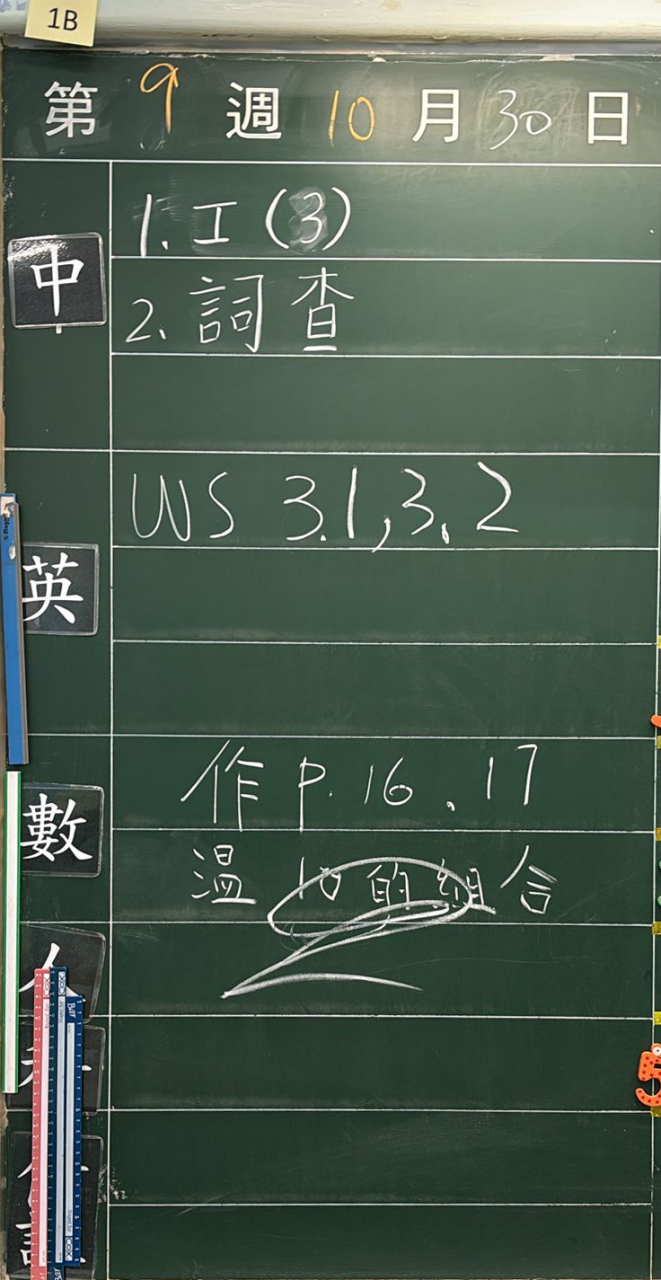 1B
第 9 週 10 月 30 日
中
1. 工 (3)
2. 詞 查
英
WS 3.1, 3.2
數
作 P. 16、17
溫 10 的 組 合
5